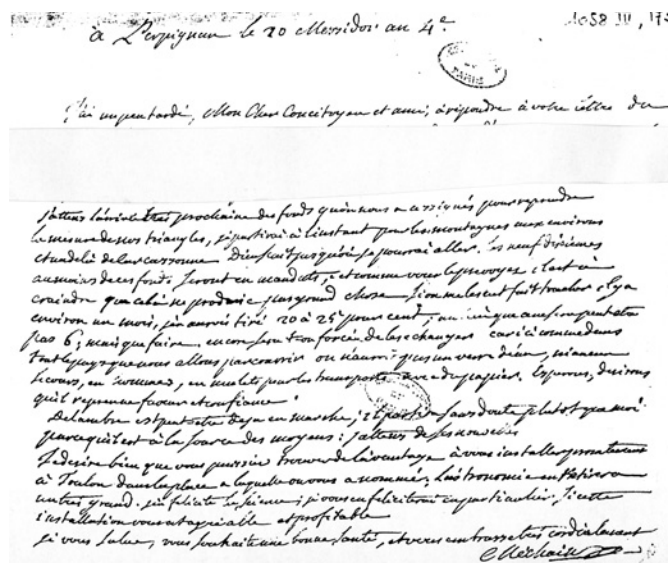 à Perpignan le 20 Messidor an 4e
1058 IV, 17
PARIS
J'ai un peu tardé, Mon Cher Concitoyen et ami, à répondre à votre lettre du
j'attens l'arrivée très prochaine des fonds qu'on nous a assignés pour reprendre
la mesure de nos triangles, je partirai à l'instant pour les montagnes aux environs
et au delà de Carcassonne Dieu sait jusqu'où je pourrai aller. les neuf dixièmes
au moins de ces fonds seront en mandats, et comme vous le prevoyez il est à
craindre que cela ne produise pas grand chose si on me les eut fait toucher il y a
environ un mois, j'en aurois tiré 20 à 25 pour cent, au
pas 6; mais que faire, encore sera t'on forcé de les changer car ici comme dans
tout le pays que nous allons parcourir on n'auroit pas un verre d'eau, ni aucun
secours, en hommes, en mulets pour les transports avec du papier. Esperons, desirons
qu'il reprenne faveur et confiance.
Delambre est peutetre deja en marche, il partira sans doute plutot que moi
parce qu'il est à la source des moyens: j'attens de ses nouvelles
Je desire bien que vous puissiez trouver de l'avantage à vous installer promtement
à Toulon dans la place a laquelle on vous a nommé, L'astronomie en retirera
un très grand. j'en felicite la science; je vous en feliciterai en particulier, si cette
installation vous est agreable et profitable
je vous salue, vous souhaite une bonne santé, et vous embrasse très cordialement
Méchain